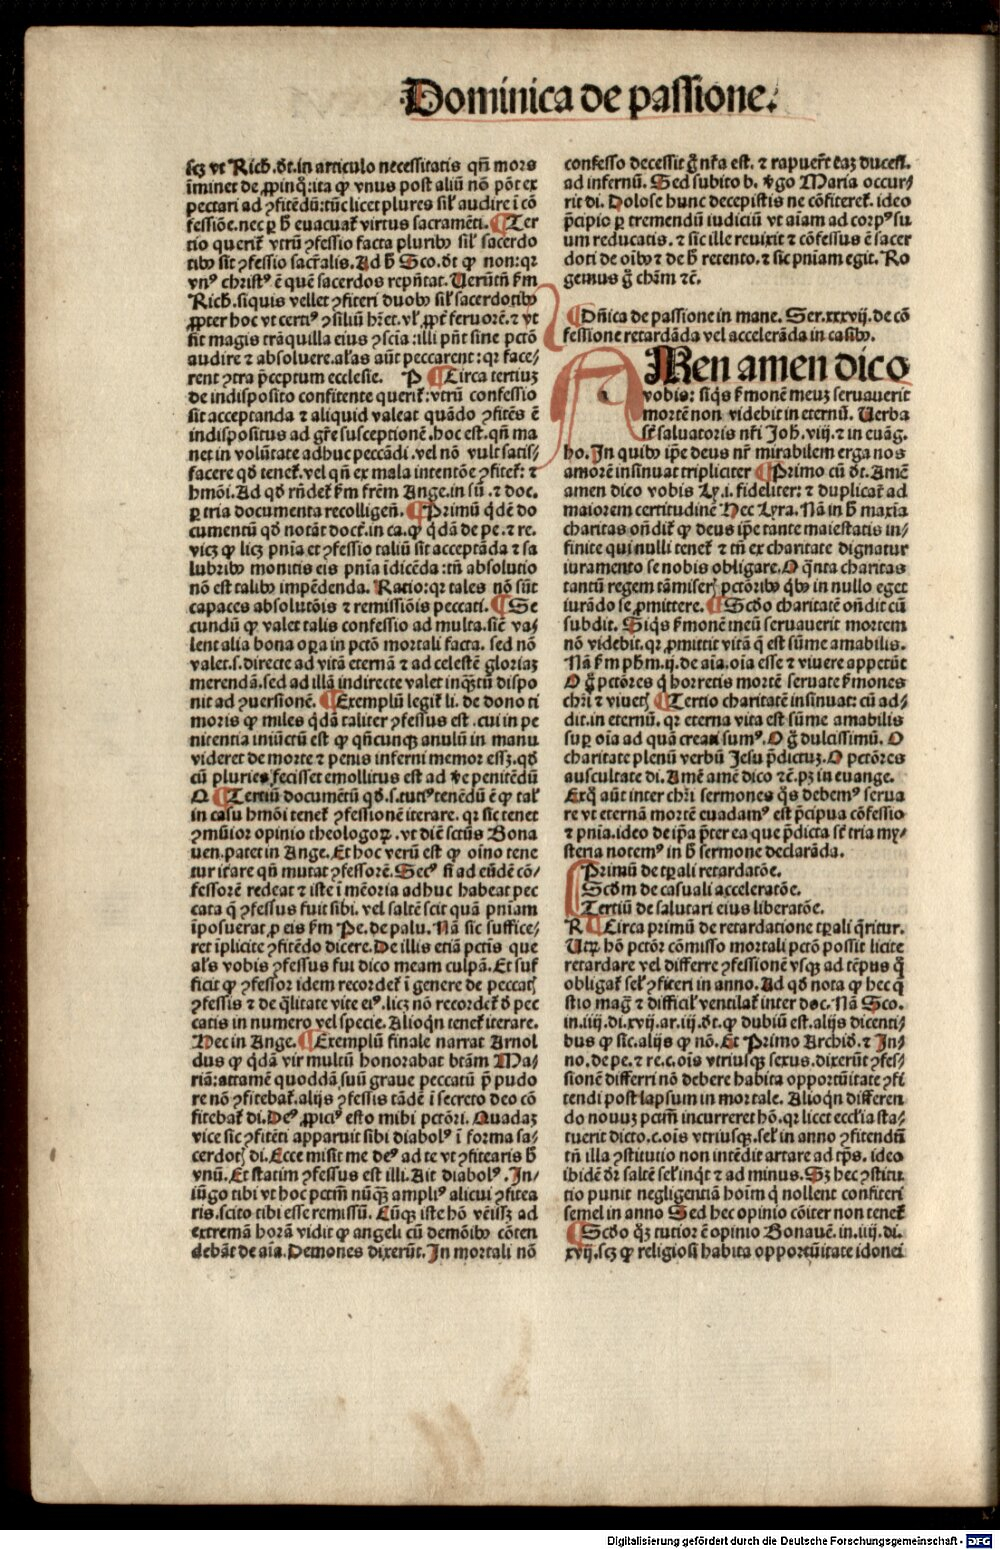 Dominica de passione.
scꝫ vt Rich. dt. in articulo necessitatis qñ mors
īminet de ꝓpinq̊: ita ꝙ vnus post aliū nō pōt ex
pectari ad ↄfitēdū: tūc licet plures sil̉ audire ī cō
fessiōe. nec ꝑ h̄ euacuat̉ virtus sacramēti. ¶Ter
tio querit̉ vtrū ↄfessio facta pluribꝰ sil̉ sacerdo
tibꝰ sit ↄfessio sacr̄alis. Ad h̄ Sco. dt ꝙ non: qꝛ
vnꝰ christꝰ ē quē sacerdos rep̄ntat. Uerūtñ ẜm
Rich. siquis vellet ↄfiteri duobꝰ sil̉ sacerdotibꝰ
ꝓpter hoc vt certiꝰ ↄsiliū hr̄et. vl̉ ꝓpt̄ feruorē. ⁊ vt
sit magis trāquilla eius ↄscīa: illi pn̄t sine pctō
audire ⁊ absoluere. al̉as aūt peccarent: qꝛ face⸗
rent ↄtra p̄ceptum ecclesie. P ¶Circa tertiuꝫ
de indisposito confitente querit̉: vtrū confessio
sit acceptanda ⁊ aliquid valeat quādo ↄfitēs ē
indispositus ad gr̄e susceptionē. hoc est. qñ ma
net in volūtate adhuc peccādi. vel nō vult satis⸗
facere qd̉ tenet̉. vel qñ ex mala intentōe ↄfitet̉: ⁊
hmōi. Ad qd̉ rn̄det̉ ẜm fr̄em Ange. in sū. ⁊ doc.
ꝑ tria documenta recolligen̄. ¶Primū q̇dē do
cumentū qd̉ notāt doct̄. in ca. ꝙ q̇dā de pe. ⁊ re.
vicꝫ ꝙ licꝫ pn̄ia et ↄfessio taliū sit acceptāda ⁊ sa
lubribꝰ monitis eis pn̄ia īdicēda: tn̄ absolutio
nō est talibꝰ impēdenda. Ratio: qꝛ tales nō sūt
capaces absolutōis ⁊ remissiōis peccati. ¶Se
cundū ꝙ valet talis confessio ad multa. sic̄ va⸗
lent alia bona oꝑa in pctō mortali facta. sed nō
valet. s. directe ad vitā eternā ⁊ ad celestē gloriaꝫ
merendā. sed ad illā indirecte valet inq̄ꝫtū dispo
nit ad ↄuersionē. ¶Exemplū legit̉ li. de dono ti
moris ꝙ miles q̇dā taliter ↄfessus est. cui in pe
nitentia iniūctū est ꝙ qñcunqꝫ anulū in manu
videret de morte ⁊ penis inferni memor essꝫ. qd̉
cū pluries fecisset emollitus est ad v̄e penitēdū
Q ¶Tertiū documētū qd̉. s. tutiꝰ tenēdū ē ꝙ tal̉
in casu hmōi tenet̉ ↄfessionē iterare. qꝛ sic tenet
ↄmūior opinio theologoꝝ. vt dic̄ sctūs Bona
uen. patet in Ange. Et hoc verū est ꝙ oīno tene
tur it̄are qñ mutat ↄfessorē. Secꝰ si ad eūdē cō⸗
fessorē redeat ⁊ iste ī mēoria adhuc habeat pec
cata q̄ ↄfessus fuit sibi. vel saltē scit quā pn̄iam
īposuerat ꝓ eis ẜm Pe. de palu. Nā sic suffice⸗
ret īplicite ↄfitēdo dicere. De illis etiā pctīs que
al̉s vobis ↄfessus fui dico meam culpā. Et suf
ficit ꝙ ↄfessor idem recordet̉ ī genere de peccatꝭ
ↄfessis ⁊ de q̄litate vite eiꝰ. licꝫ nō recordet̉ d̉ pec
catis in numero vel specie. Alioq̇n tenet̉ iterare.
Hec in Ange. ¶Exemplū finale narrat Arnol
dus ꝙ q̇dā vir multū honorabat btām Ma⸗
riā: attamē quoddā suū graue peccatū p̄ pudo
re nō ↄfitebat̉. alijs ↄfessis tādē ī secreto deo cō
fitebat̉ di. Deꝰ ꝓpiciꝰ esto mihi pctōri. Quadaꝫ
vice sic ↄfitēti apparuit sibi diabolꝰ ī forma sa⸗
cerdotꝭ di. Ecce misit me deꝰ ad te vt ↄfitearis h̄
vnū. Et statim ↄfessus est illi. Ait diabolꝰ. In⸗
iūgo tibi vt hoc pctm̄ nūqꝫ ampliꝰ alicui ↄfitea
ris. scito tibi esse remissū. Cūqꝫ iste hō veissꝫ ad
extremā horā vidit ꝙ angeli cū demōibꝰ cōten
debāt de aīa. Demones dixerūt. In mortali nō
confesso decessit g̊ nr̄a est. ⁊ rapuer̄t eaꝫ ducen̄.
ad infernū. Sed subito b. v̄go Maria occur⸗
rit di. Dolose hunc decepistis ne cōfiteret̉. ideo
p̄cipio ꝑ tremendū iudiciū vt aīam ad corpꝰ su
um reducatis. ⁊ sic ille reuixit ⁊ cōfessus ē sacer
doti de oībꝰ ⁊ de h̄ retento. ⁊ sic pn̄iam egit. Ro
gemus g̊ chr̄m ⁊c̄.
¶Dn̄ica de passione in mane. Ser. xxxvij. de cō
fessione retardāda vel accelerāda in casibꝰ.
AMen amen dico
vobis: siq̇s ẜmonē meuꝫ seruauerit
mortē non videbit in eternū. Uerba
st̄ saluatoris nr̄i Joh. viij. ⁊ in euāg.
ho. In quibꝰ ip̄e deus nr̄ mirabilem erga nos
amorē insinuat tripliciter ¶Primo cū dt. Amē
amen dico vobis Ly. i. fideliter: ⁊ duplicat̄ ad
maiorem certitudinē Hec Lyra. Nā in h̄ maxīa
charitas on̄dit̉ ꝙ deus ip̄e tante maiestatis in⸗
finite qui nulli tenet̉ ⁊ tn̄ ex charitate dignatur
iuramento se nobis obligare. O q̄nta charitas
tantū regem tā miserꝭ pctōribꝰ q̇bꝰ in nullo eget
iurādo se ꝓmittere. ¶Scd̉o charitatē on̄dit cū
subdit. Siq̇s ẜmonē meū seruauerit mortem
nō videbit. qꝛ ꝓmittit vitā q̄ est sūme amabilis.
Nā ẜm ph̄m. ij. de aīa. oīa esse ⁊ viuere appetūt
O g̊ pctōres q̇ horretis mortē seruate ẜmones
chr̄i ⁊ viuetꝭ ¶Tertio charitatē insinuat: cū ad⸗
dit. in eternū. qꝛ eterna vita est sūme amabilis
suꝑ oīa ad quā creati sumꝰ. O g̊ dulcissimū. O
charitate plenū verbū Jesu p̄dictuꝫ. O pctōres
auscultate di. Amē amē dico ⁊c̄. pꝫ in euange.
Exq̇ aūt inter chr̄i sermones q̇s debemꝰ serua
re vt eternā mortē euadamꝰ est p̄cipua cōfessio
⁊ pn̄ia. ideo de ip̄a p̄ter ea que p̄dicta st̄ tria my⸗
steria notemꝰ in h̄ sermone declarāda.
Primū de tꝑali retardatōe.
Scd̉m de casuali acceleratōe.
Tertiū de salutari eius liberatōe.
R ¶Circa primū de retardatione tꝑali q̄ritur.
Utꝝ hō pctōr cōmisso mortali pctō possit licite
retardare vel differre ↄfessionē vsqꝫ ad tēpus q̊
obligat̉ sel̉ ↄfiteri in anno. Ad qd̉ nota ꝙ hec q̄
stio maḡ ⁊ difficil̉ ventilat̉ inter doc. Nā Sco.
in. iiij. di. xvij. ar. iij. dt. ꝙ dubiū est. alijs dicenti⸗
bus ꝙ sic. alijs ꝙ nō. Et Primo Archid. ⁊ In⸗
no. de pe. ⁊ re. c. oīs vtriusqꝫ sexus. dixerūt ↄfes⸗
sionē differri nō debere habita opportūitate ↄfi
tendi post lapsum in mortale. Alioq̇n differen
do nouuꝫ pctm̄ incurreret hō. qꝛ licet eccl̉ia sta⸗
tuerit dicto. c. oīs vtriusqꝫ. sel̉ in anno ↄfitendū
tn̄ illa ↄstitutio non intēdit artare ad tp̄s. ideo
ibidē dr̄ saltē sel̉ inq̇t ⁊ ad minus. Sꝫ hec ↄstitu
tio punit negligentiā hoīm q̇ nollent confiteri
semel in anno Sed hec opinio cōiter non tenet̉
¶Scd̉o q̇ꝫ tutior ē opinio Bonauē. in. iiij. di.
xvij. scꝫ ꝙ religiosi habita opportūitate idonei
Digitalisierung gefördert durch die Deutsche Forschungsgemeinschaft - DFG